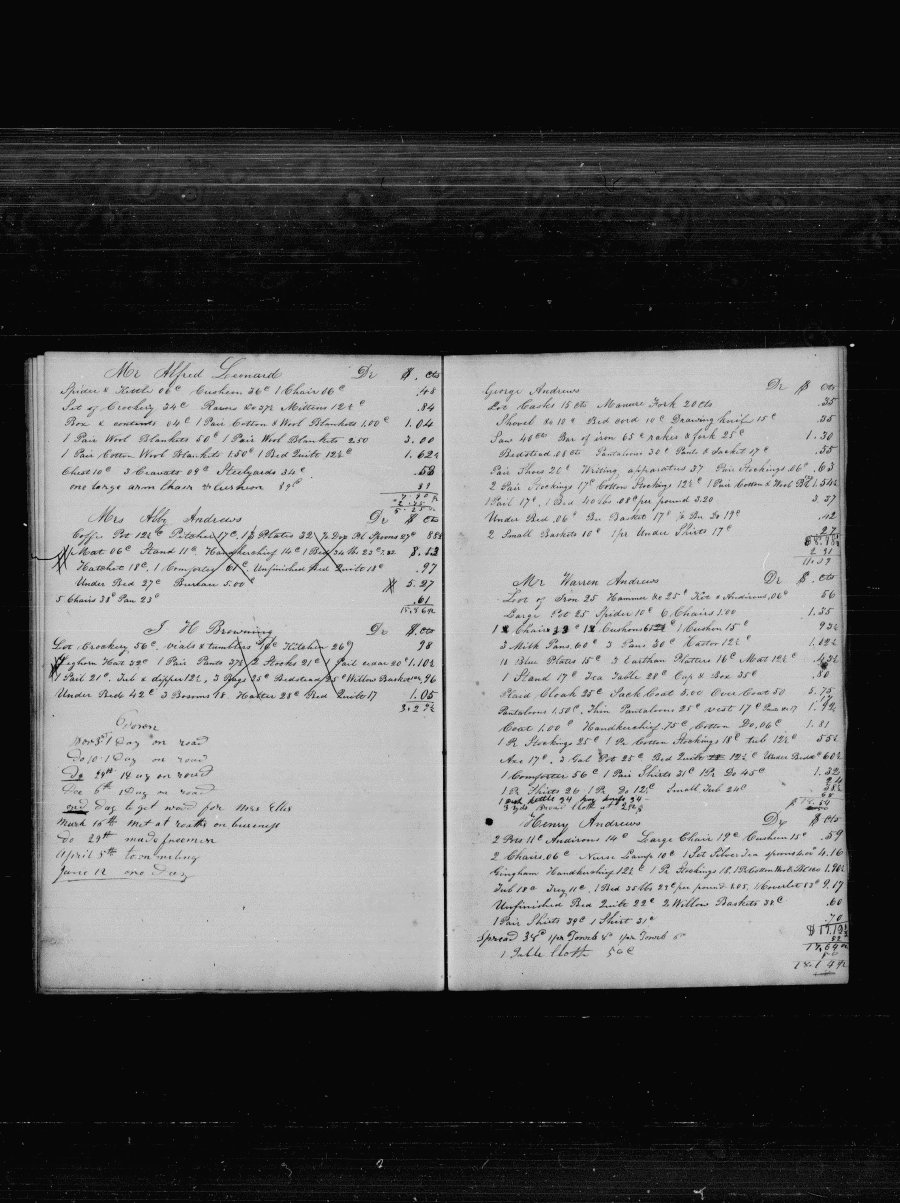 Mr Alfred Leonard Dr $ . cts
Spider & Kettle 06c Cushion 36c 1 Chair 06c .48
Set of Crockery 34c Razors &c 37½ Mittens 12½c .84
Box & contents 04c 1 Pair Cotton & Wool Blankets 1.00c 1.04
1 Pair Wool Blankets 50c 1 Pair Wool Blankets 2.50 3.00
1 Pair Cotton Wool Blankets 1.50c 1 Bed Quilt 12½c 1.62½
Chest 10c 3 Cravats 09c Steelyards 34c .53
one large arm Chair & Cushion
Mrs Abby Andrews Dr $ cts
Coffee Pot 12½c Pitcher 17c. 12 Plates 32 ½ Doz Pl Spoons 27c 88½
Mat 06c Stand 11c Handkerchief 14c 1 Bed 34 lbs 23c 7.82 8.13
Hatchet 18c. 1 Comforter 61c. Unfinished Bed Quilt 18c .97
Under Bed 27c Bureau 5.00c 5.27
5 Chairs 38c Pan 23c .61
J H Browning Dr $ . cts
Lot Crockery 56c. vials & tumblers 16c Kitchen 26c 98
Leghorn Hat 32c 1 Pair Pants 37½ 2 Stocks 21c 1 Pail 20c 1.10½
1 Pail 21c. Tub & dipper 12½. 3 Bags 25c Bedstead 25c Willow Basket .96
Under Beds 42c 3 Bosoms 18. Halter 28c Bed Quilt 17 1.05
3.27½
1 Day on road
Do 10 1 Day on road
Do 29th 1 Day on road
Dec 6th 1 Day on road
one day to get word for Mrs Ellis
March 16th met at on business
do 29th made freeman
April 5th town meeting
June 12 one day
George Andrews Dr $ cts
Lot Casks 15 cts Manure Fork 20 cts .35
Shovel &c 10c Bed cord 10c Drawing knife 15c .35
Saw 40cts Bar of iron 65c rakes & fork 25c 1.30
Bedstead .08cts Pantaloons 30c Pants & Jacket 17c .55
Pair Shoes 20c Writing apparatus 37 Pair Stockings .06c .63
2 Pair Stockings 17c Cotton Stockings 12½c 1 Pair Cotton & Wool Bl 1.54½
1 Pail 17c. 1 Bed 40 lbs .08c per pound 3.20 3.37
Under Bed .06c Bu Basket 17c ½ Bu Do 19c .42
2 Small Baskets 10c 1 pr Under Shirts 17c 27
2 31
11.39
Mr Warren Andrews Dr $ . cts
Loot of Iron 25 Hammer &c 25c Hoe & Andirons .06c 56
Large Pot 25 Spider 10c 6 Chairs 1.00 1.35
1 Cushion 15c 93½
3 Milk Pans .60c 3 Pans 30c Kastor 12½c 1.02½
11 Blue Plates 15c 3 Earthan Platters 16c Mat 12½c .43½
1 Stand 17c Tea Table 28c Cup & Box 35c .80
Plaid Cloak 25c Sack Coat 5.00 Over Coat 50 5.75
Pantaloons 1.50c. Thin Pantaloons 25c vest 17c 1.92
Coat 1.00c Handkerchief .75c Cotton Do .06c 1.81
1 Pr Stockings 25c 1 Pr Cotton Stockings 18c tub 12½c 55½
Axe 17c. 3 Gal Pot 25c Bed Quilt 12½c Under Bed 60½
1 Comforter 56c 1 Pair Shirts 31c 1 Pr Do 45c 1.32
1 Pr Shirts 26 1 Pr Do 12c Small Tub 24c
3 yds Broad Cloth at
Henry Andrews Dr $ cts
2 Pots 11c Andirons 14c Large Chair 19c Cushion 15c .59
2 Chairs .06c Nurse Lamp 10c 1 Set Silver Tea spoons 4.00c 4.16
Gingham Handkerchief 12½c 1 Pr Stockings 18. 1 Pr Cotton Wool 1.90½
Tub 18c Trey 11c. 1 Bed 35 lbs 23c per pound 8.05. 1 Coverlet 83c 9.17
Unfinished Bed Quilt 22c 2 Willow Baskets 38c .60
1 Pair Shirts 39c 1 Shirt 31c .70
Spread 38c 1 pr Towels 8c 1 pr Towels 6c
1 Table Cloth 50c